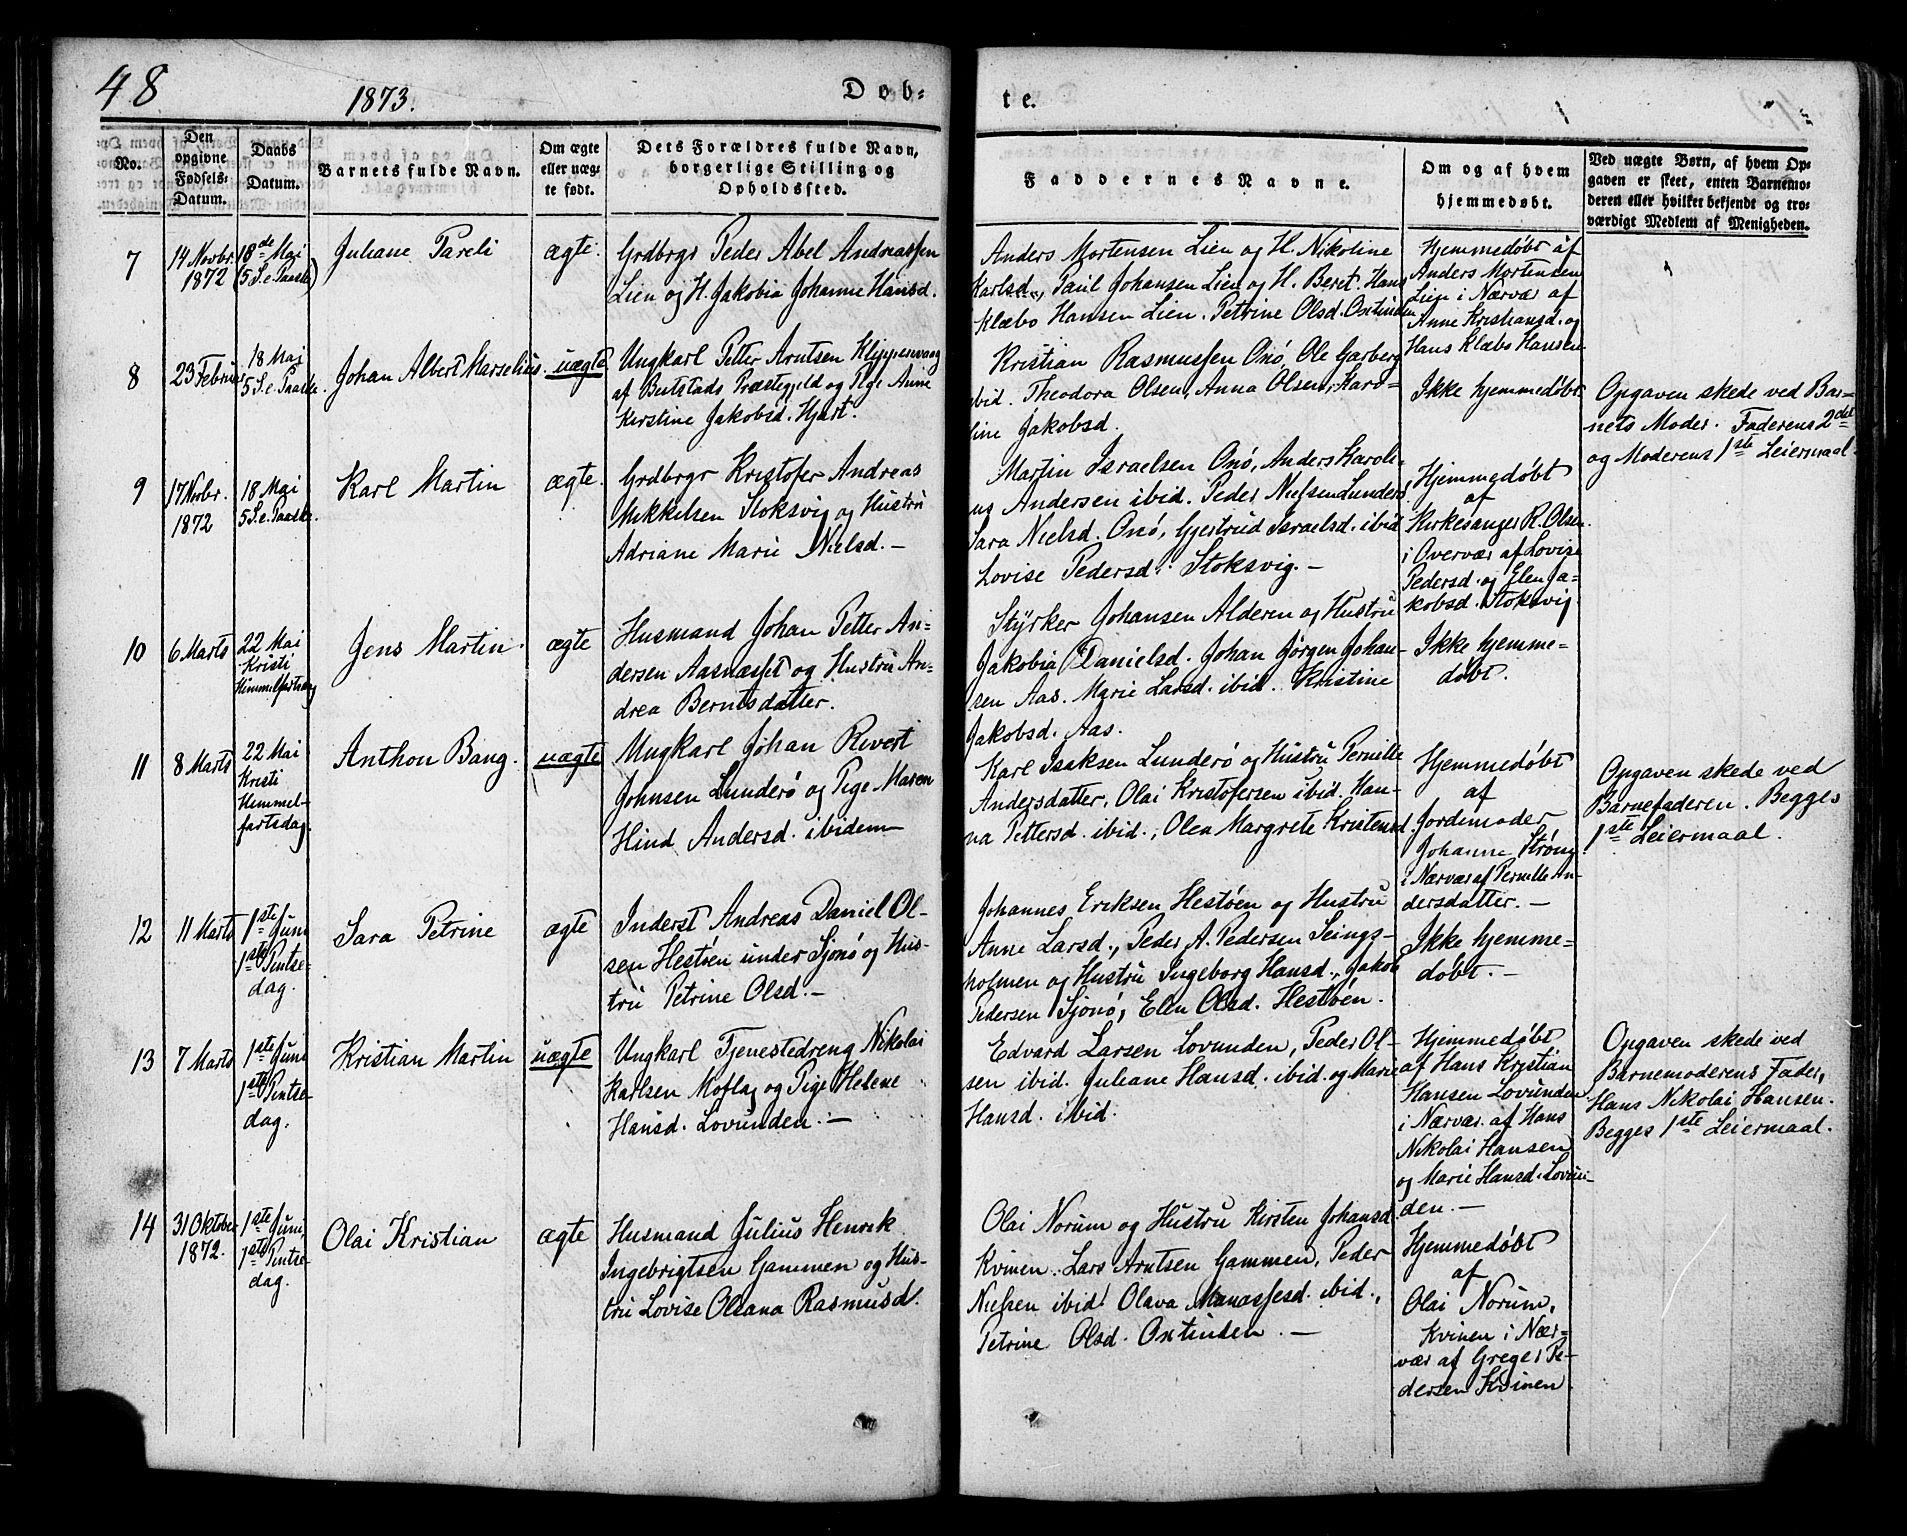 48
1873.
Døb-
te.
No.
Den
opgivne
Fødsels-
Datum.
Daabs
Datum.
Barnets fulde Navn.
Om ægte
eller uæg-
te født.
Dets Forældres fulde Navn,
borgerlige Stilling og
Opholdssted.
Faddernes Navne.
Om og af hvem
hjemmedøbt.
Ved uægte Børn, af hvem Op-
gaven er skeet, enten Barnemo-
deren eller hvilket bekjendt og tro-
værdigt Medlem af Menigheden.
7
14 Novbr.
1872
18de Mai
(5 S. e. Paaske)
Juliane Pareli
ægte.
Grdbrgr Peder Abel Andreassen
Lien og H. Jakobia Johanne Hansd.
Anders Mortensen Lien og H. Nikoline
Karlsd., Paul Johansen Lien og H. Beret. Hans
Klæbo Hansen Lien. Petrine Olsd. Oxtinden
Hjemmedøbt af
Anders Mortensen
Lien i Nærvær af
Anne Kristiansd. og
Hans Klæbo Hansen
8
23 Februar
18 Mai
5 S. e. Paaske.
Johan Albert Marselius.
uægte
Ungkarl Petter Arntsen Klippenvaag
af Butstads Præstegjeld og Pige Anne
Kerstine Jakobsd. Hjart.
Kristian Rasmussen Onö, Ole Garberg
ibid. Theodora Olsen, Anna Olsen, Karo-
line Jakobsd.
Ikke hjemmedøbt
Opgaven skede ved Bar-
nets Moder. Faderens 2det
og Moderens 1ste Leiermaal.
9
17 Novbr.
1872
18 Mai
5 S. e. Paaske.
Karl Martin
ægte.
Grdbrgr Kristofer Andreas
Mikkelsen Stoksvig og Hustru
Adriane Marie Nielsd. —
Martin Israelsen Onö, Anders Karoli-
us Andersen ibid. Peder Nielsen Lunderö,
Sara Nielsd. Onö, Gjertrud Israelsd. ibid
Lovise Pedersd. Stoksvig. —
Hjemmedøbt
af
Kirkesanger R. Olsen
i Overvær af Lovise
Pedersd. og Elen Ja-
kobsd. Stoksvig
10
6 Marts
22 Mai
Kristi
Himmelfartsdag
Jens Martin.
ægte
Husmand Johan Petter An-
dersen Aasnæsset og Hustru An-
drea Berntsdatter.
Styrker Johansen Alderen og Hustru
Jakobia Danielsd. Johan Jörgen Johan-
sen Aas. Marie Larsd. ibid. Kristine
Jakobsd. Aas.
Ikke hjemme-
døbt.
11
8 Marts
22 Mai
Kristi
Himmel-
fartsdag.
Anthon Bang.
uægte
Ungkarl Johan Rivert
Johnsen Lunderö og Pige Maren
Hind Andersd. ibidem
Karl Isaksen Lunderö og Hustru Pernille
Andersdatter, Olai Kristofersen ibid. Han-
na Pettersd. ibid., Olea Margrete Kristensd.
Hjemmedøbt
af
Jordemoder
Johanne Ström
i Nærvær af Pernille An-
dersdatter. —
Opgaven skede ved
Barnefaderen. Begges
1ste Leiermaal.
12
11 Marts
1ste Juni
1ste Pintse-
dag.
Sara Petrine
ægte
Inderst Andreas Daniel Ol-
sen Hestöen under Sjonö og Hus-
tru Petrine Olsd. —
Johannes Eriksen Hestöen og Hustru
Anne Larsd., Peder A. Pedersen Seings-
holmen og Hustru Ingeborg Hansd., Jakob
Pedersen Sjonö, Elen Olsd. Hestöen.
Ikke hjemme-
døbt. —
13
7 Marts
1ste Juni
1ste Pintse-
dag.
Kristian Martin
uægte
Ungkarl Tjenestedreng Nikolai
Karlsen Moflag og Pige Helene
Hansd. Lovunden. —
Edvard Larsen Lovunden, Peder Ol-
sen ibid. Juliane Hansd. ibid. og Marie
Hansd. ibid.
Hjemmedøbt
af Hans Kristian
Hansen Lovunden
i Nærvær. af Hans
Nikolai Hansen
og Marie Hansd. Lovun-
den. —
Opgaven skede ved
Barnemoderens Fader,
Hans Nikolai Hansen.
Begges 1ste Leiermaal.
14
31 Oktober
1872.
1ste Juni,
1ste Pintse-
dag.
Olai Kristian
ægte
Husmand Julius Henrik
Ingebrigtsen Gammen og Hus-
tru Lovise Oleana Rasmusd.
Olai Norum og Hustru Kirsten Johansd.
Kvinen. Lars Arntsen Gammen, Peder
Nielsen ibid. Olava Manassesd. ibid.,
Petrine Olsd. Oxtinden. —
Hjemmedøbt
af
Olai Norum,
Kvinen i Nær-
vær af Greger Pe-
dersen Kvinen.